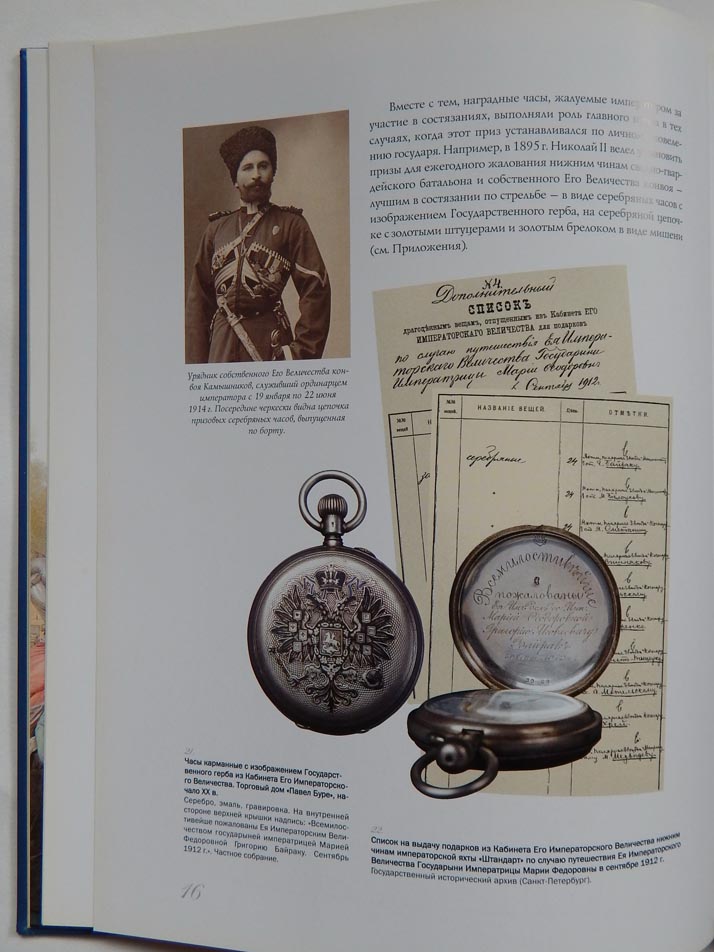 Вместе с тем, наградные часы, жалуемые императором за
участие в состязаниях, выполняли роль главного в тех
случаях, когда этот приз устанавливался по личному повеле-
нию государя. Например, в 1895 г. Николай II велел установить
призы для ежегодного жалования нижним чинам сводно-гвар-
дейского батальона и собственного Его Величества конвоя –
лучшим в состязании по стрельбе – в виде серебряных часов с
изображением Государственного герба, на серебряной цепоч-
ке с золотыми штуцерами и золотым брелоком в виде мишени
(см. Приложения).
Урядник собственного Его Величества кон-
воя Камышников, служивший ординарцем
императора с 19 января по 22 июня
1914 г. Посередине черкески видна цепочка
призовых серебряных часов, выпущенная
по борту.
№4.
Дополнительный
СПИСОКЪ
драгоцѣннымъ вещамъ, отпущеннымъ изъ Кабинета ЕГО
ИМПЕРАТОРСКАГО ВЕЛИЧЕСТВА для подарковъ
по случаю путешествія Ея Импера-
торскаго Величества Государыни
Императрицы Маріи Ѳеодоровны
Сентябрь 1912 г.
НАЗВАНІЕ ВЕЩЕЙ.
ОТМѢТКИ.
серебряные
24
24
24
Всемилостивѣйше
пожалованы
Маріей Ѳеодоровной
Григорію
Байраку
21
Часы карманные с изображением Государст-
венного герба из Кабинета Его Императорско-
го Величества. Торговый дом «Павел Буре», на-
чало XX в.
Серебро, эмаль, гравировка. На внутренней
стороне верхней крышки надпись: «Всемилос-
тивейше пожалованы Ея Императорским Вели-
чеством государыней императрицей Марией
Федоровной Григорию Байраку. Сентябрь
1912 г.». Частное собрание.
22
Список на выдачу подарков из Кабинета Его Императорского Величества нижним
чинам императорской яхты «Штандарт» по случаю путешествия Ея Императорского
Величества Государыни Императрицы Марии Федоровны в сентябре 1912 г.
Государственный исторический архив (Санкт-Петербург).
16